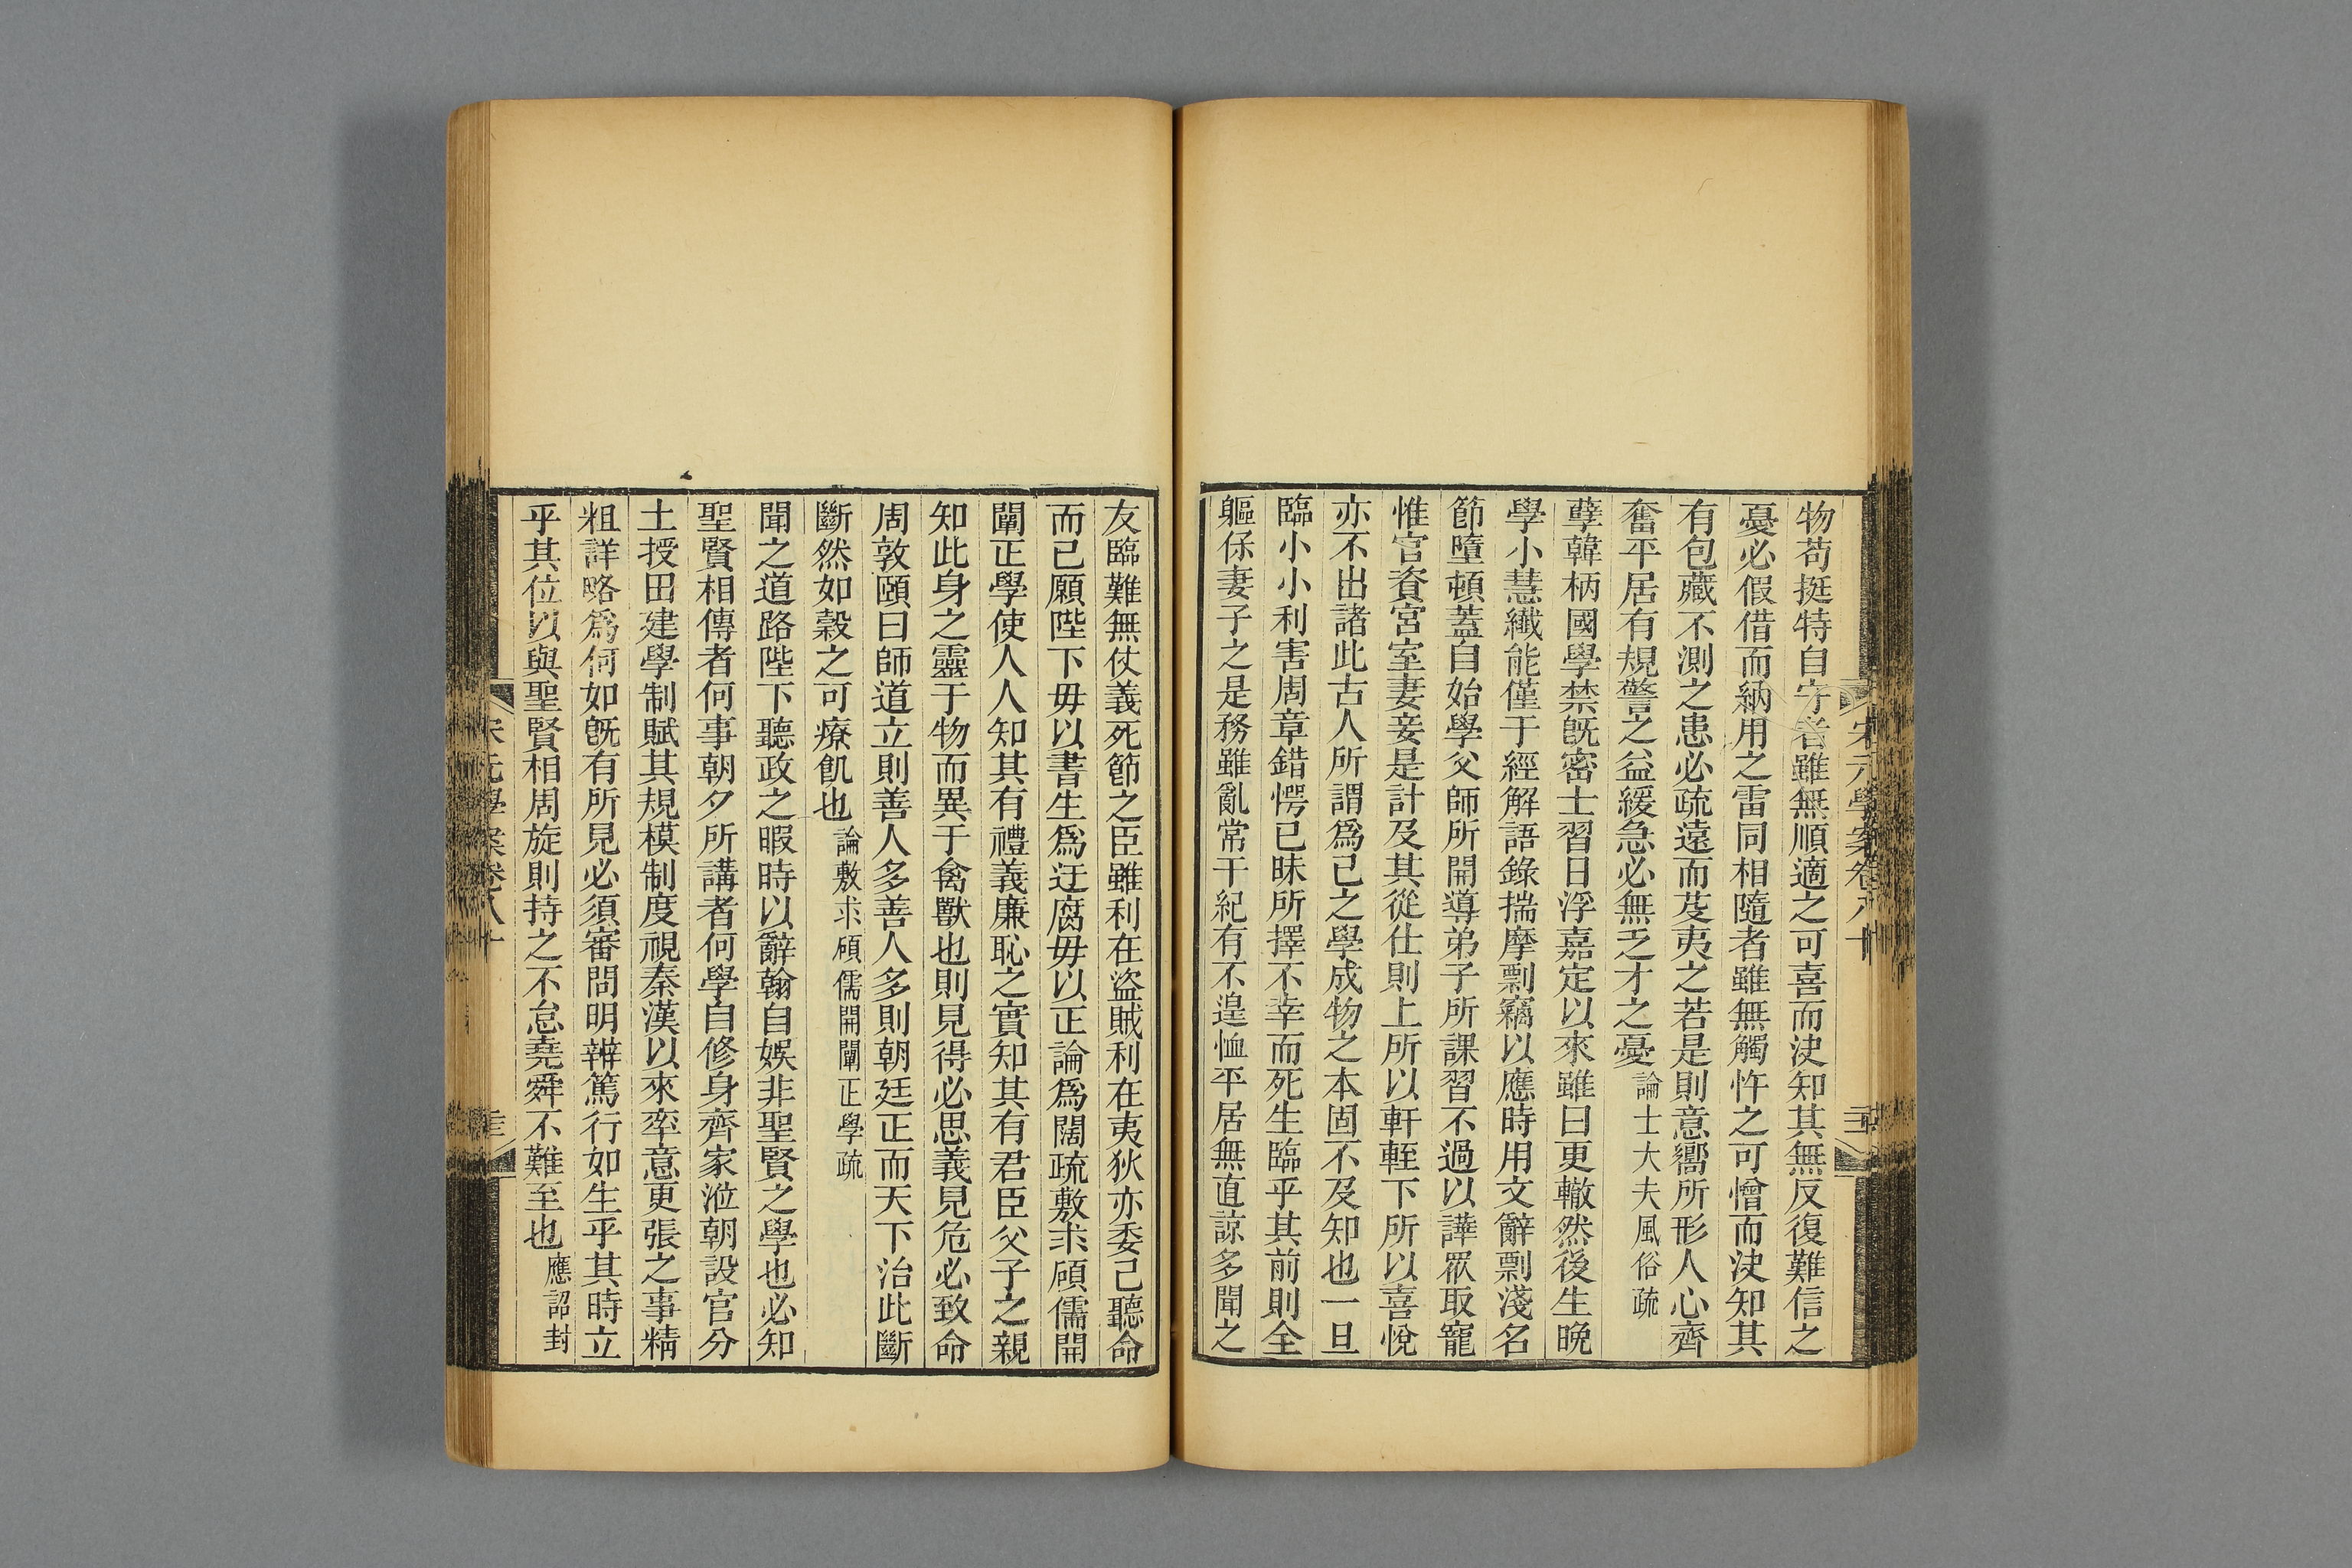 物苟挺特自守者雖無順適之可喜而決知其無反復難信之
憂必假借而納用之雷同相隨者雖無觸忤之可憎而決知其
有包藏不測之患必疏遠而芟夷之若是則意嚮所形人心齊
奮平居有規警之益緩急必無乏才之憂論士大夫風俗疏
孽韓柄國學禁旣密士習日浮嘉定以來雖曰更轍然後生晚
學小慧纖能僅于經解語錄揣摩剽竊以應時用文辭剽淺名
節墮頓蓋自始學父師所開導弟子所課習不過以譁眾取寵
惟官資宮室妻妾是計及其從仕則上所以軒輊下所以喜悅
亦不出諸此古人所謂爲己之學成物之本固不及知也一旦
臨小小利害周章錯愕已昧所擇不幸而死生臨乎其前則全
軀保妻子之是務雖亂常干紀有不遑恤平居無直諒多聞之
宋元學案卷八十
友臨難無仗義死節之臣雖利在盜賊利在夷狄亦委己聽命
而已願陛下毋以書生爲迂腐毋以正論爲闊疏敷求碩儒開
闡正學使人人知其有禮義廉恥之實知其有君臣父子之親
知此身之靈于物而異于禽獸也則見得必思義見危必致命
周敦頤曰師道立則善人多善人多則朝廷正而天下治此斷
斷然如穀之可療飢也論敷求碩儒開闡正學疏
聞之道路陛下聽政之暇時以辭翰自娛非聖賢之學也必知
聖賢相傳者何事朝夕所講者何學自修身齊家涖朝設官分
土授田建學制賦其規模制度視秦漢以來率意更張之事精
粗詳略爲何如旣有所見必須審問明辨篤行如生乎其時立
乎其位以與聖賢相周旋則持之不怠堯舜不難至也應詔封
宋元學案卷八十